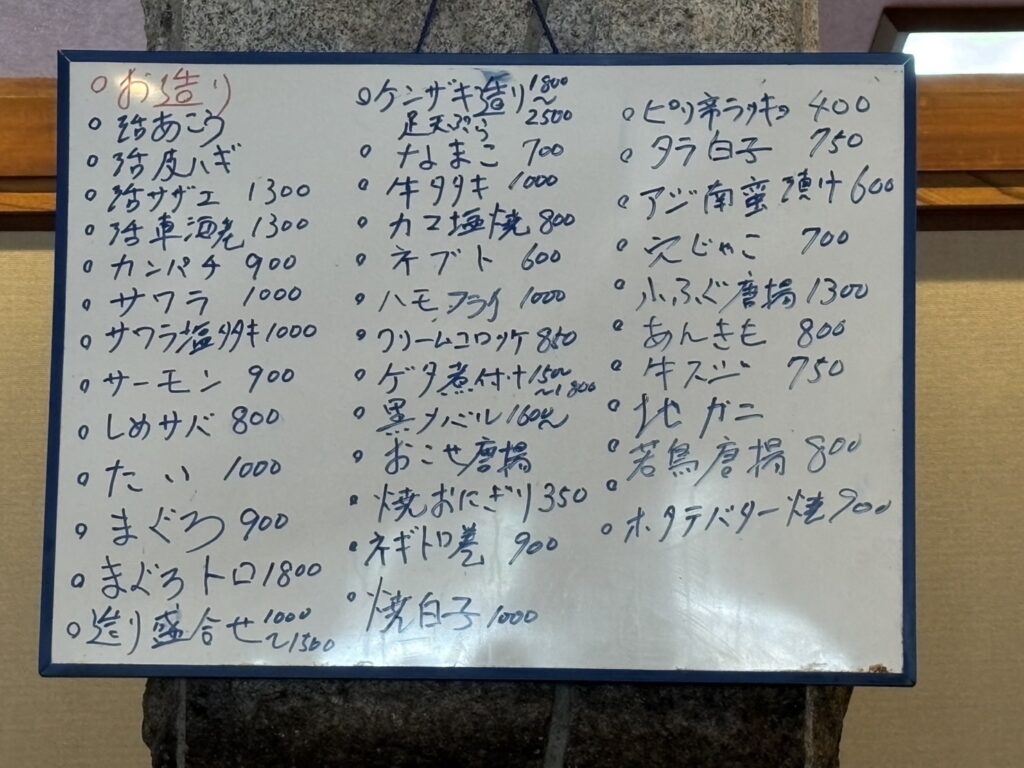 お造り
活あこう
活皮ハギ
活サザエ 1300
活車海老 1300
カンパチ 900
サワラ 1000
サワラ塩タタキ 1000
サーモン 900
しめサバ 800
たい 1000
まぐろ 900
まぐろトロ 1800
造り盛合せ 1000〜1500
ケンサキ造り 1800〜2500
足天ぷら
なまこ 700
牛タタキ 1000
カマ塩焼 800
ネブト 600
ハモフライ 1000
クリームコロッケ 850
ゲタ煮付け 1500〜1800
黒メバル 1600
おこせ唐揚
焼おにぎり 350
ネギトロ巻 900
焼白子 1000
ピリ辛ラッキョ 400
タラ白子 750
アジ南蛮漬け 600
穴じゃこ 700
小ふぐ唐揚 1300
あんきも 800
牛スジ 750
地ガニ
若鳥唐揚 800
ホタテバター焼 900